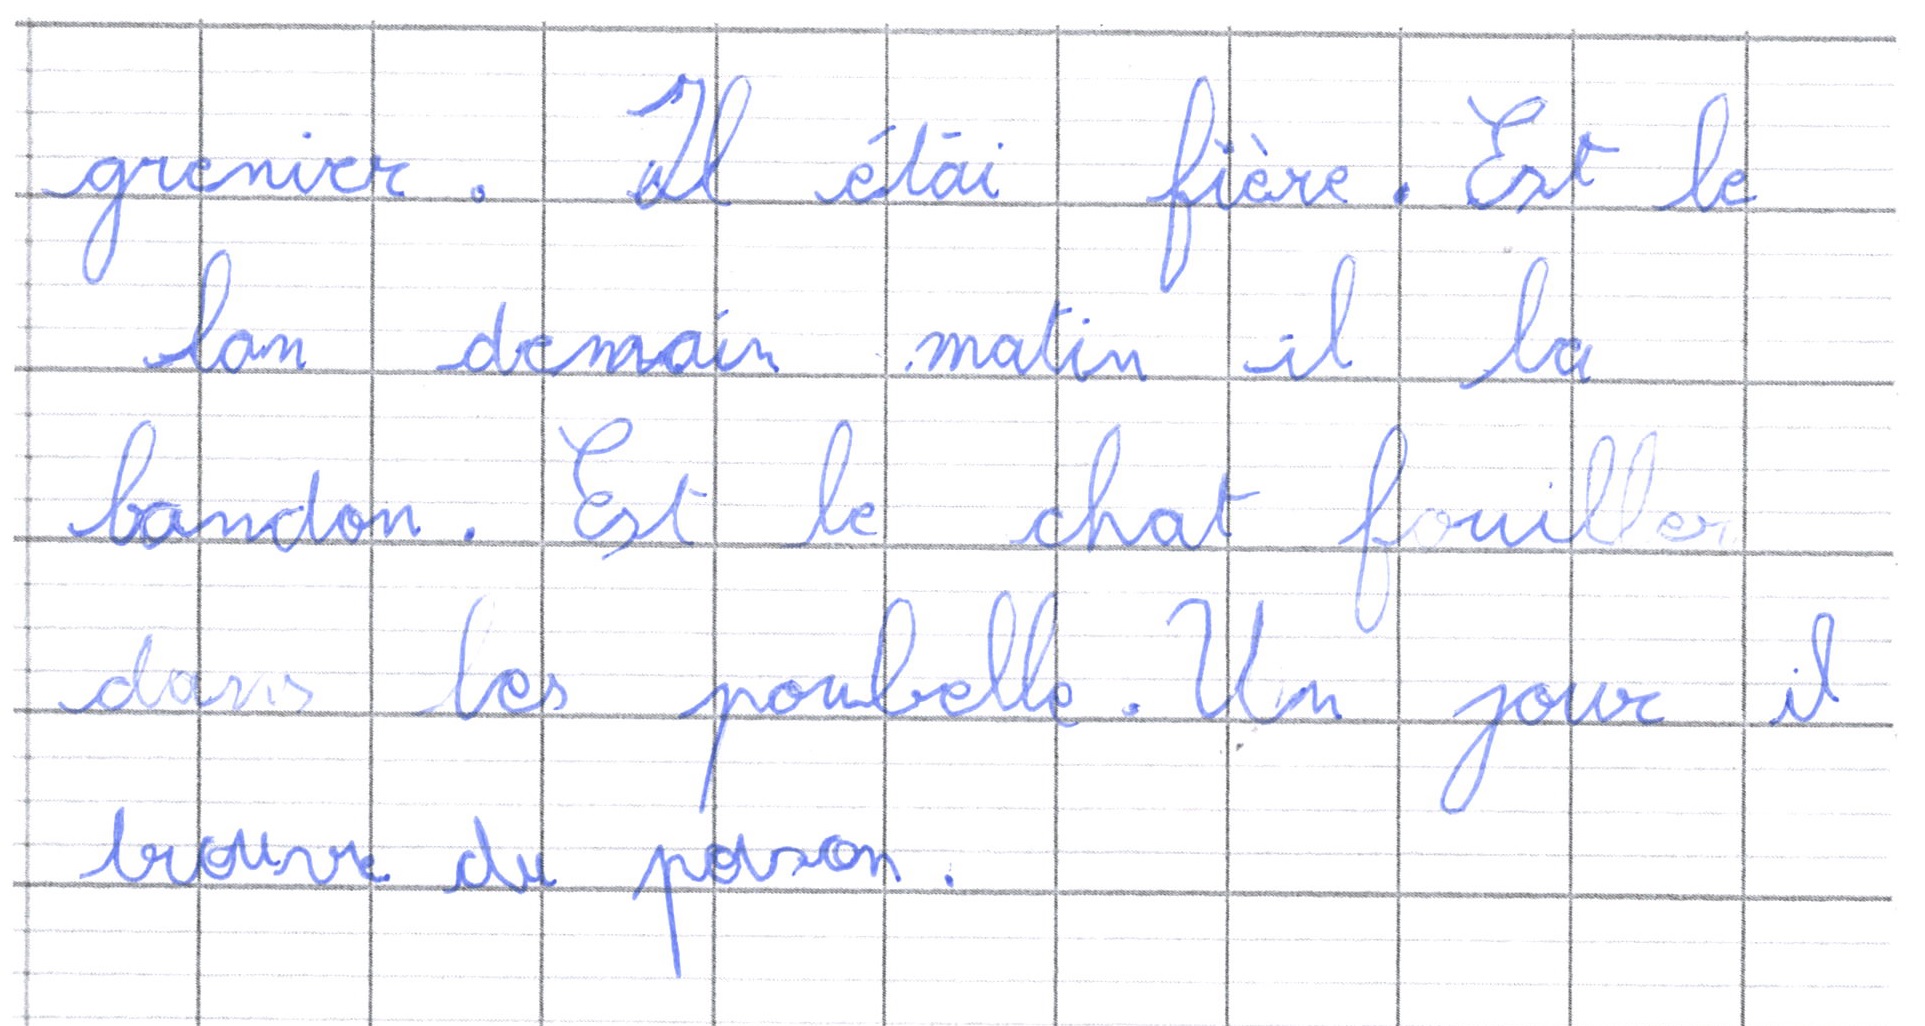 grenier. Il étai fière. Est le
lan demain matin il la
bandon. Est le chat fouiller
dans les poubelle. Un jour il
trouve du poison.